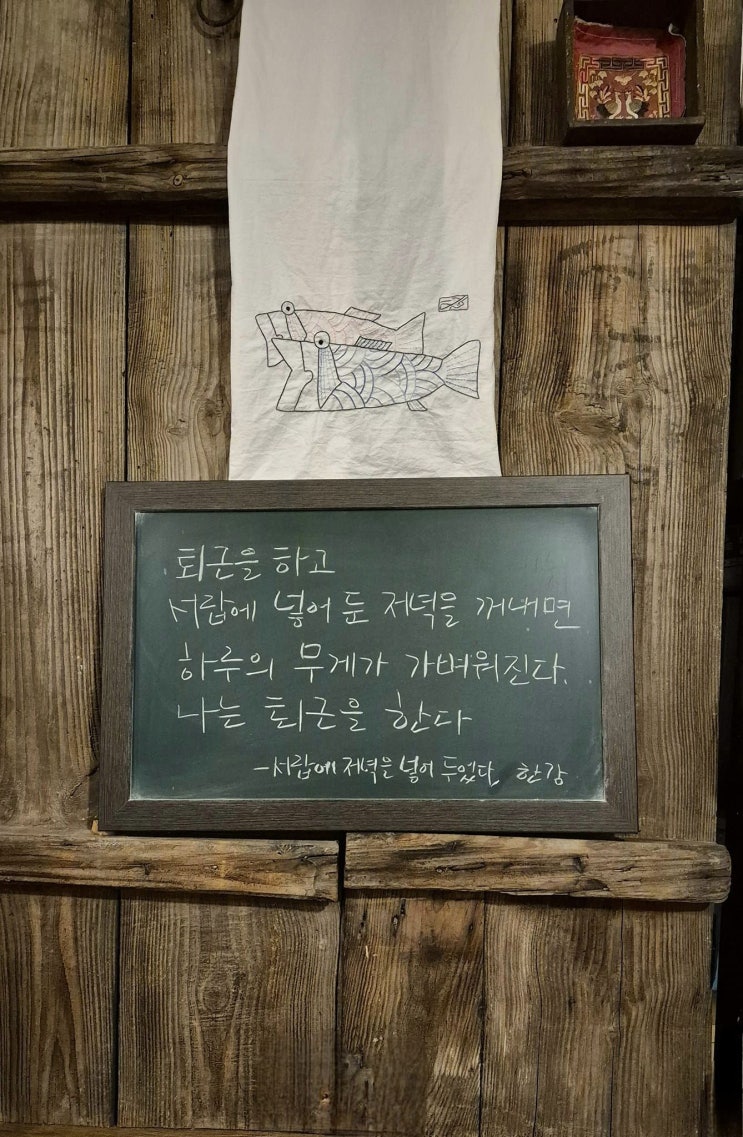 퇴근을 하고
서랍에 넣어 둔 저녁을 꺼내면
하루의 무게가 가벼워진다.
나는 퇴근을 한다
-서랍에 저녁을 넣어 두었다 한강